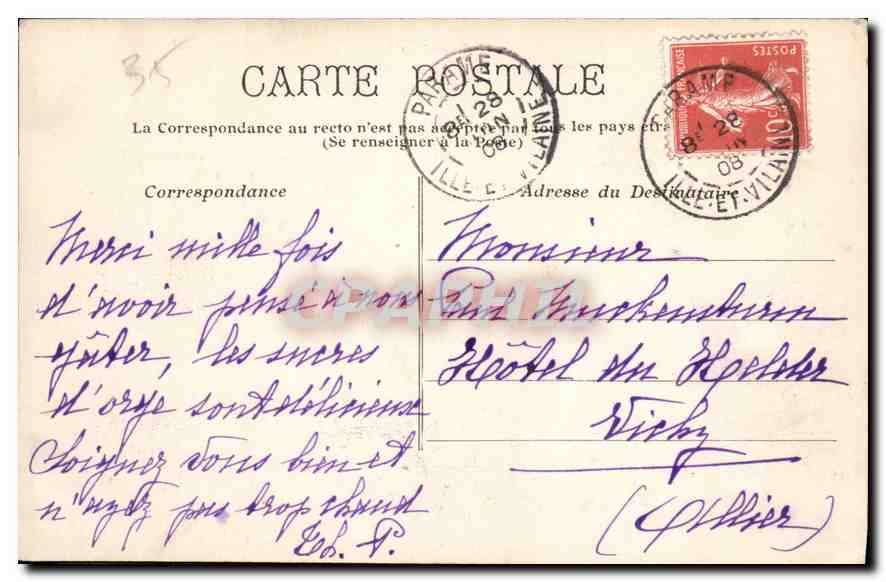 35
CARTE POSTALE
La Correspondance au recto n'est pas acceptée par tous les pays étra
(Se renseigner à la Poste)
PARAMÉ
8E 28
JUIN
08
ILLE-ET-VILAINE
REPUBLIQUE FRANÇAISE
POSTES
10c
PARAMÉ
8E 28
JUIN
08
ILLE-ET-VILAINE
Correspondance
Merci mille fois
d'avoir pensé à nous
gâter, les sucres
d'orge sont délicieux
Soignez vous bien et
n'ayez pas trop chaud
Th. P.
Adresse du Destinataire
Monsieur
Paul
Hôtel du Helder
Vichy
(Allier)
CPAPHIL